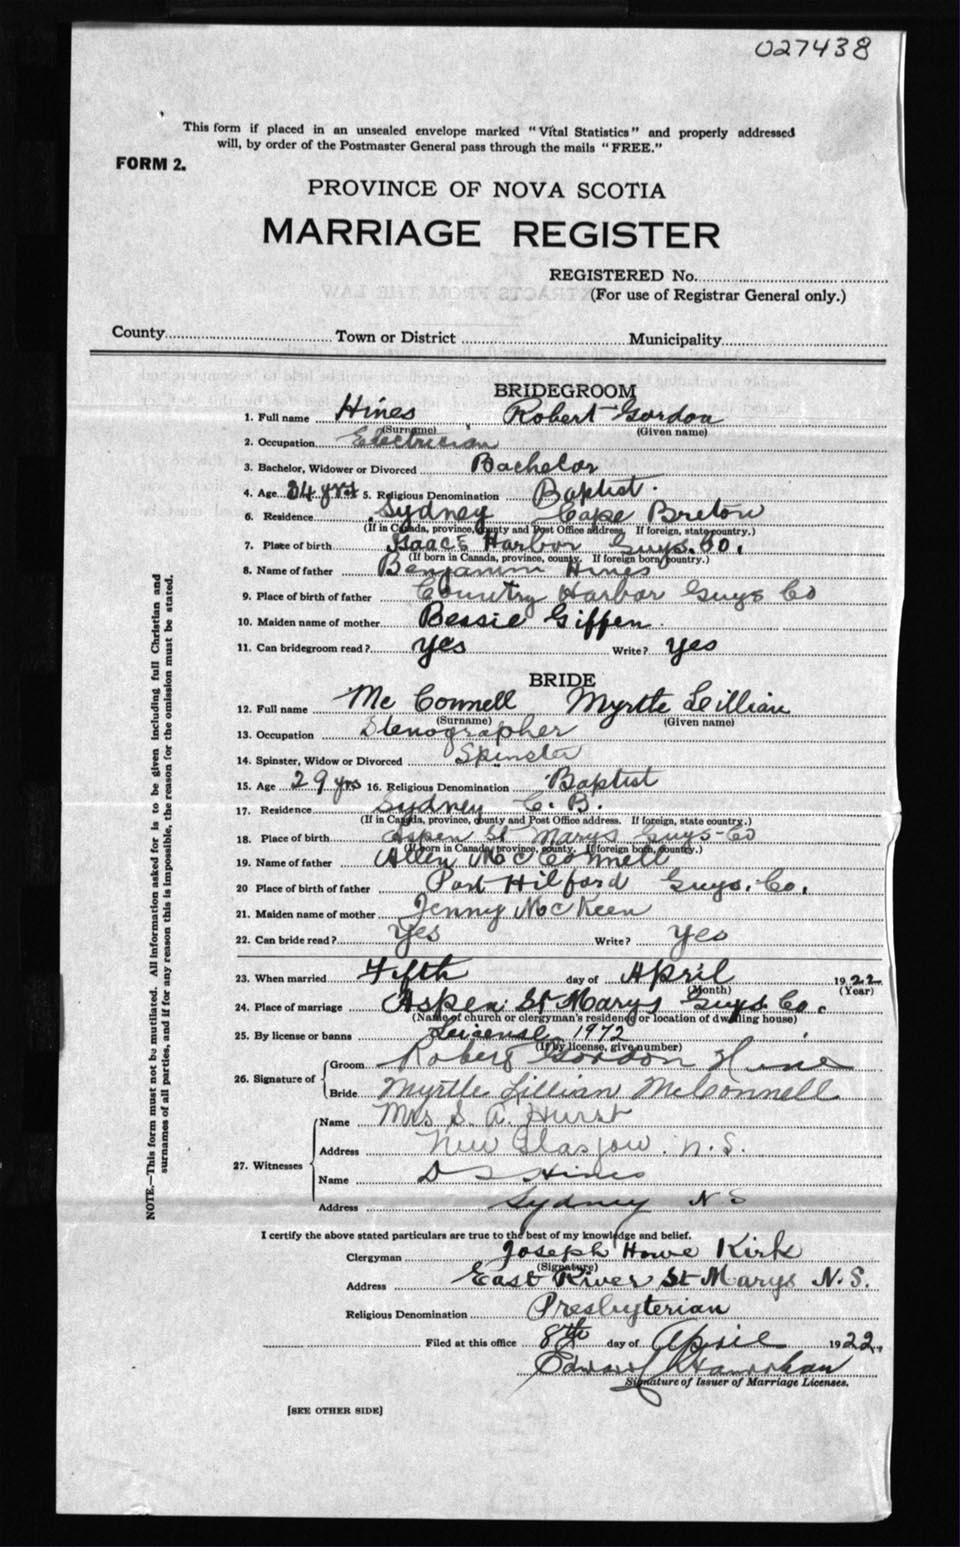 027438
This form if placed in an unsealed envelope marked "Vital Statistics" and properly addressed
will, by order of the Postmaster General pass through the mails "FREE."
FORM 2.
PROVINCE OF NOVA SCOTIA
MARRIAGE REGISTER
REGISTERED No.
(For use of Registrar General only.)
County Town or District Municipality
BRIDEGROOM
1. Full name Hines Robert Gordon
(Surname) (Given name)
2. Occupation Electrician
3. Bachelor, Widower or Divorced Bachelor
4. Age 24 yrs 5. Religious Denomination Baptist.
6. Residence Sydney Cape Breton
(If in Canada, province, county and Post Office address. If foreign, state country.)
7. Place of birth Isaacs Harbor Guys. Co.
(If born in Canada, province, county. If foreign born, country.)
8. Name of father Benjamin Hines
9. Place of birth of father Country Harbor Guys Co
10. Maiden name of mother Bessie Giffen.
11. Can bridegroom read? yes Write? yes
BRIDE
12. Full name McConnell Myrtle Lillian
(Surname) (Given name)
13. Occupation Stenographer
14. Spinster, Widow or Divorced Spinster
15. Age 29 yrs 16. Religious Denomination Baptist
17. Residence Sydney C. B.
(If in Canada, province, county and Post Office address. If foreign, state country.)
18. Place of birth Aspen St Marys Guys-Co
(If born in Canada, province, county. If foreign born, country.)
19. Name of father Allen McConnell
20 Place of birth of father Port Hilford Guys. Co.
21. Maiden name of mother Jenny McKeen
22. Can bride read? Yes Write? yes
23. When married Fifth day of April 1922
(Month) (Year)
24. Place of marriage Aspen St Marys Guys Co.
(Name of church or clergyman's residence or location of dwelling house)
25. By license or banns License 1972
(If by license, give number)
26. Signature of Groom Robert Gordon Hines
Bride Myrtle Lillian McConnell
27. Witnesses Name Mrs S. A. Hurst
Address New Glasgow. N.S.
Name D S Hines
Address Sydney N S
I certify the above stated particulars are true to the best of my knowledge and belief.
Clergyman Joseph Howe Kirk
(Signature)
Address East River St Marys N.S.
Religious Denomination Presbyterian
Filed at this office 8th day of April 1922.
Edward Hanrahan
Signature of Issuer of Marriage Licenses.
[SEE OTHER SIDE]
NOTE.—This form must not be mutilated. All information asked for is to be given including full Christian and
surnames of all parties, and if for any reason this is impossible, the reason for the omission must be stated.